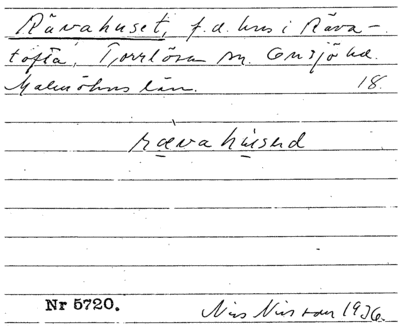 Rävahuset, f.d. hus i Räva-
tofta, Torrlösa sn. Onsjö hd.
Malmöhus län. 18.
rævahúsed
Nr 5720. Nils Nilsson 1936.